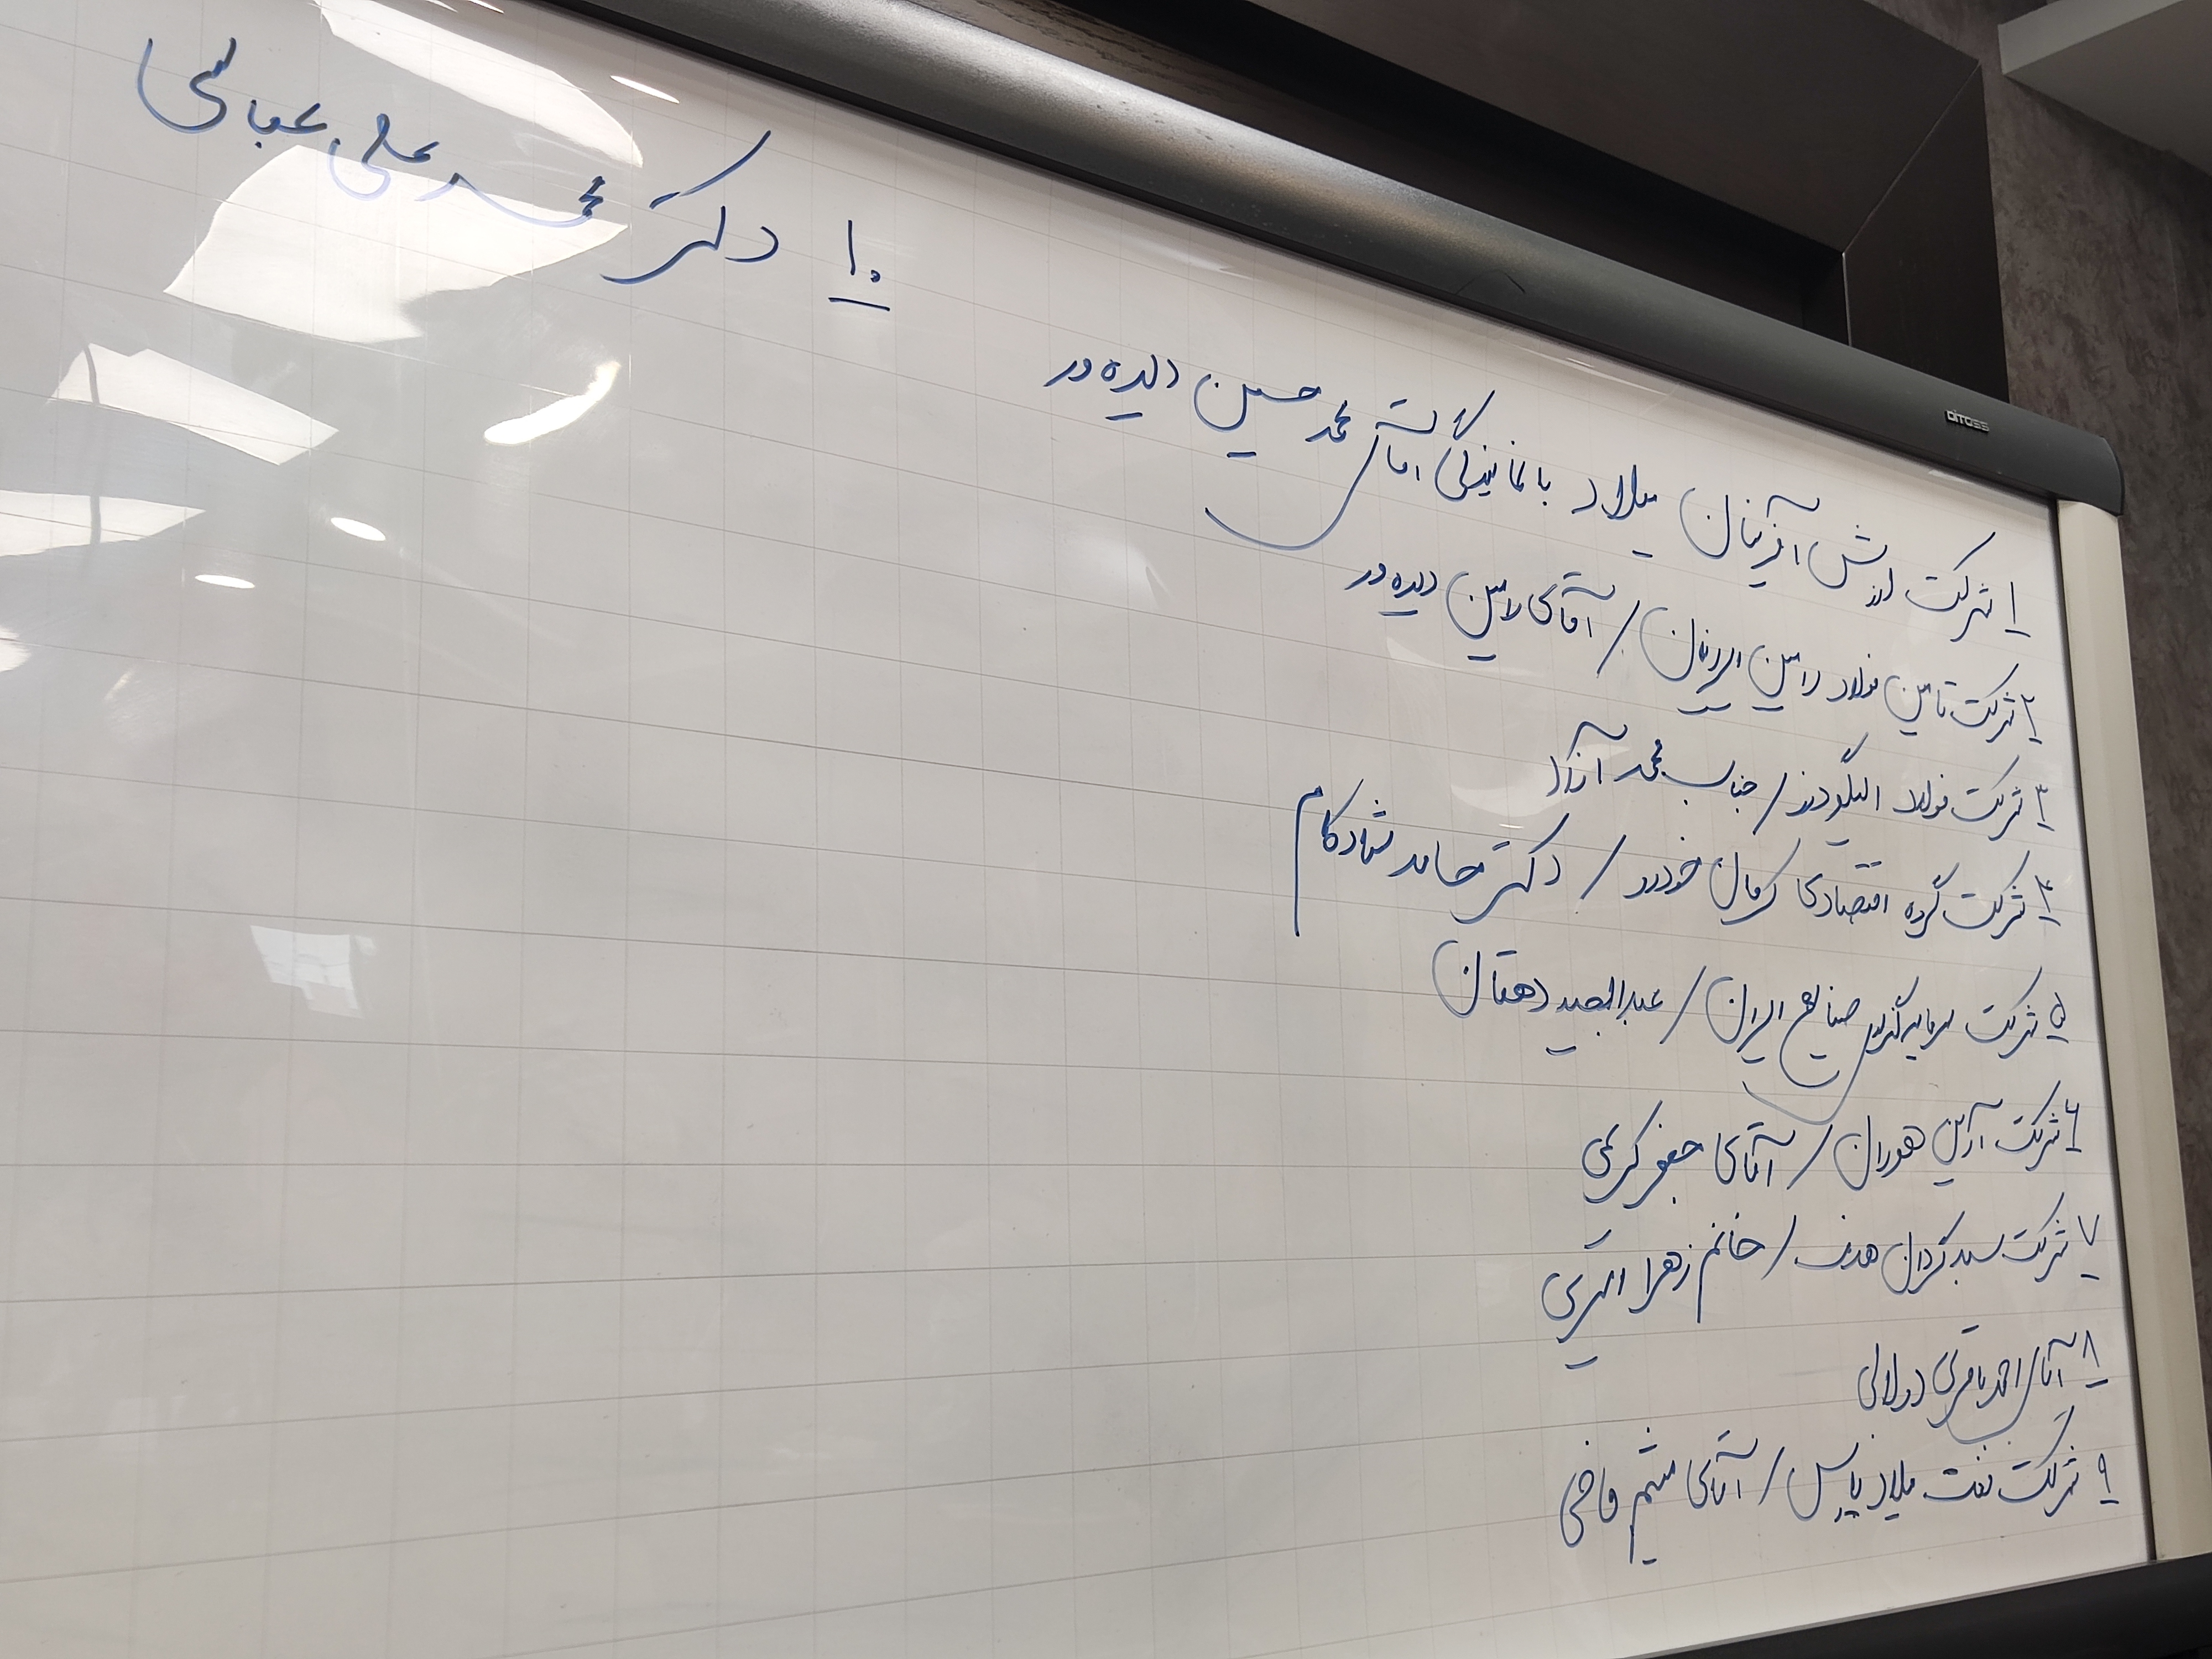 ۱ شرکت ارزش آفرینان میلاد با نمایندگی آقای محمد حسین دیده ور
۲ شرکت تامین فولاد رامین ایرانیان / آقای رامین دیده ور
۳ شرکت فولاد الیگودرز / جناب محمد آزاد
۴ شرکت گروه اقتصادی کرمان خودرو / دکتر حامد شادکام
۵ شرکت سرمایه گذاری صنایع ایران / عبدالمجید دهقان
۶ شرکت آرین هوران / آقای جعفر کریمی
۷ شرکت سبدگردان هدف / خانم زهرا اکبری
۸ آقای احمد باقری دولابی
۹ شرکت نفت میلاد پارس / آقای میثم قاضی
۱۰ دکتر محمد علی عباسی
QITOSS